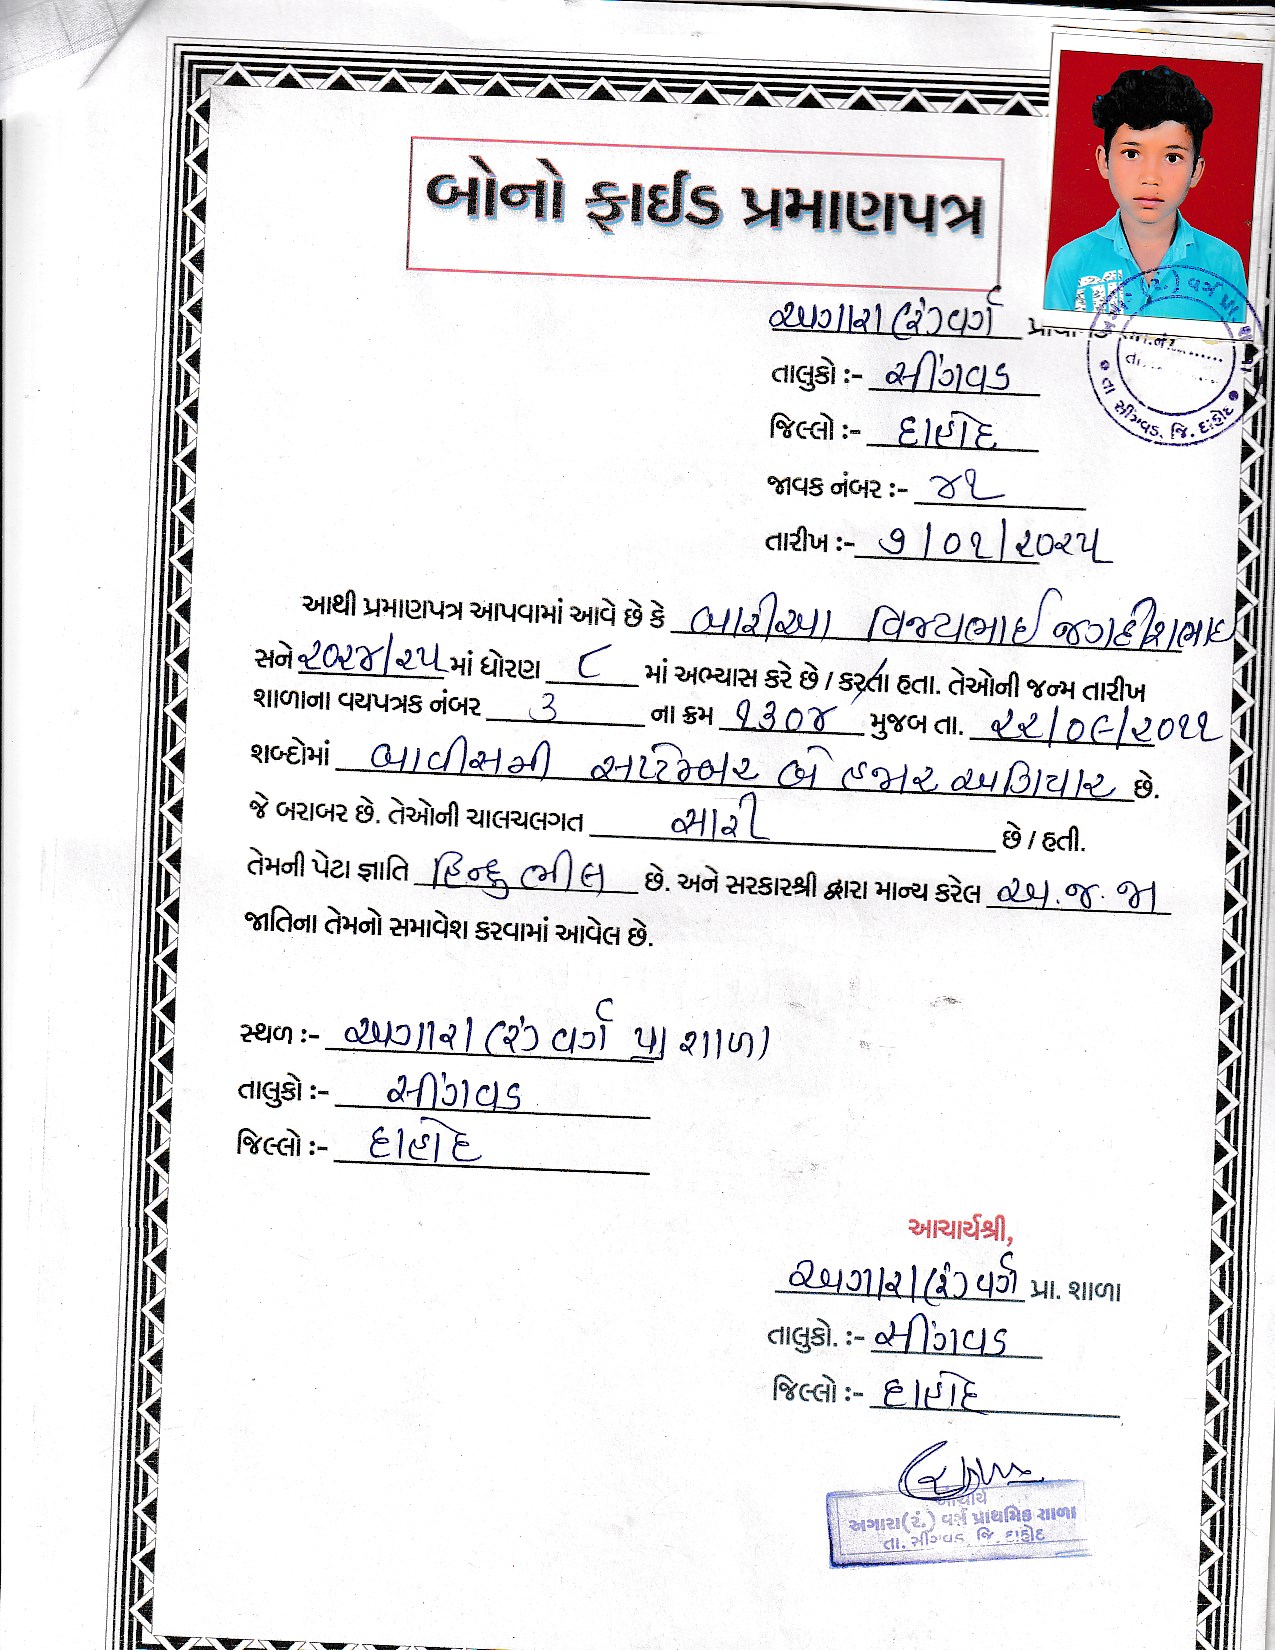 બોનો ફાઈડ પ્રમાણપત્ર
અગારા(રં)વર્ગ
તાલુકો :- સીંગવડ
જિલ્લો :- દાહોદ
જાવક નંબર :- ૪૧
તારીખ :- ૭/૦૧/૨૦૨૫
આથી પ્રમાણપત્ર આપવામાં આવે છે કે બારીઆ વિજયભાઈ જગદીશભાઇ
સને ૨૦૨૪/૨૫ માં ધોરણ ૮ માં અભ્યાસ કરે છે / કરતા હતા. તેઓની જન્મ તારીખ
શાળાના વયપત્રક નંબર ૩ ના ક્રમ ૧૩૦૪ મુજબ તા. ૨૨/૦૯/૨૦૧૧
શબ્દોમાં બાવીસમી સપ્ટેમ્બર બે હજાર અગિયાર છે.
જે બરાબર છે. તેઓની ચાલચલગત સારી છે / હતી.
તેમની પેટા જ્ઞાતિ હિન્દુ ભીલ છે. અને સરકારશ્રી દ્વારા માન્ય કરેલ અ.જ.જા
જાતિના તેમનો સમાવેશ કરવામાં આવેલ છે.
સ્થળ :- અગારા(રં)વર્ગ પ્રા શાળા
તાલુકો :- સીંગવડ
જિલ્લો :- દાહોદ
આચાર્યશ્રી,
અગારા(રં)વર્ગ પ્રા. શાળા
તાલુકો. :- સીંગવડ
જિલ્લો :- દાહોદ
આચાર્ય
અગારા(રં.) વર્ગ પ્રાથમિક શાળા
તા. સીંગવડ, જિ. દાહોદ
(રં.) વર્ગ પ્રા.
તા.
તા સીંગવડ, જિ. દાહોદ